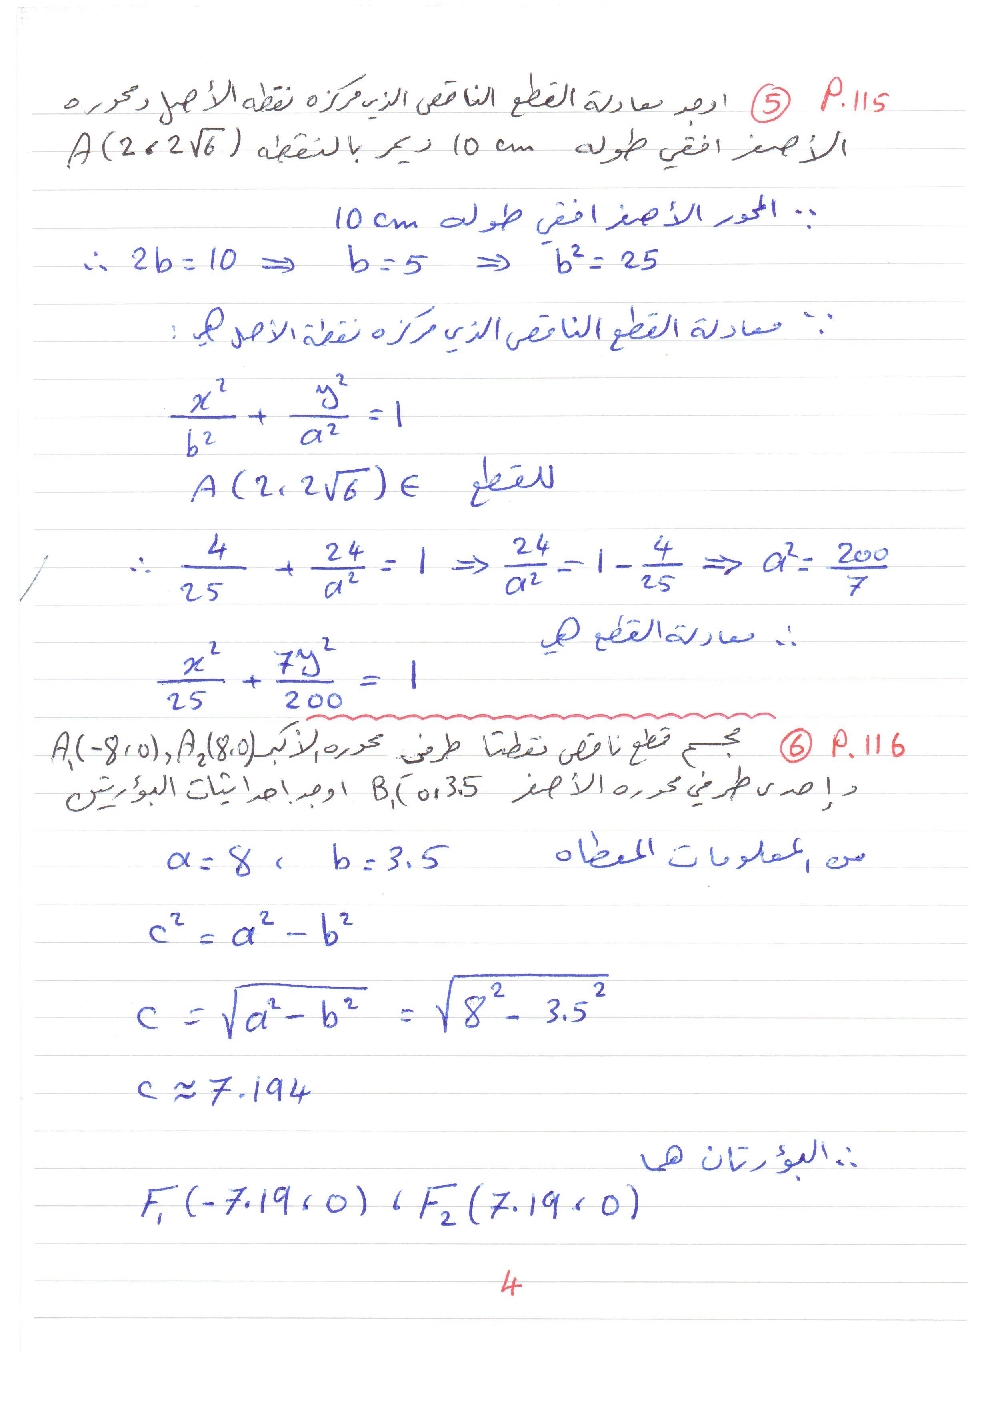 P.115 ⑤ اوجد معادلة القطع الناقص الذي مركزه نقطه الأصل ومحوره
الأصغر افقي طوله 10 cm ويمر بالنقطه A(2، 2√6)
∵ المحور الأصغر افقي طوله 10 cm
∴ 2b = 10 ⇒ b = 5 ⇒ b² = 25
∵ معادلة القطع الناقص الذي مركزه نقطة الأصل هي :
x²/b² + y²/a² = 1
A(2، 2√6) ∈ للقطع
∴ 4/25 + 24/a² = 1 ⇒ 24/a² = 1 - 4/25 ⇒ a² = 200/7
∴ معادلة القطع هي
x²/25 + 7y²/200 = 1
P.116 ⑥ مجسم قطع ناقص نقطتا طرفي محوره الأكبر A₁(-8،0), A₂(8،0)
وإحدى طرفي محوره الأصغر B₁(0،3.5 اوجد احداثيات البؤرتين
من المعلومات المعطاه a = 8 ، b = 3.5
c² = a² - b²
c = √(a² - b²) = √(8² - 3.5²)
c ≈ 7.194
∴ البؤرتان هما
F₁(-7.19، 0) ، F₂(7.19، 0)
4